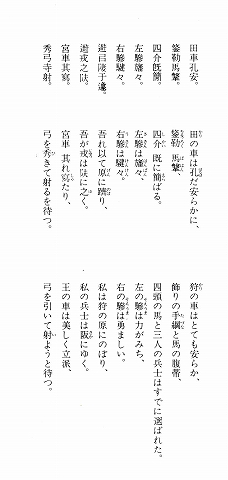 田車孔安。
鋚勒馬䋣。
四介既簡。
左驂旛々。
右驂騝々。
遊㠯隮于邍。
遊戎之阩。
宮車其寫。
秀弓寺射。
田の車は孔だ安らかに、
鋚勒、馬䋣、
四介 既に簡ばる。
左驂は旛々、
右驂は騝々。
吾れ以て原に隮り、
吾が戎は阩に之く。
宮車 其れ寫たり、
弓を秀きて射るを待つ。
狩の車はとても安らか、
飾りの手綱と馬の腹帯、
四頭の馬と三人の兵士はすでに選ばれた。
左の驂は力がみち、
右の驂は勇ましい。
私は狩の原にのぼり、
私の兵士は阪にゆく。
王の車は美しく立派、
弓を引いて射ようと待つ。